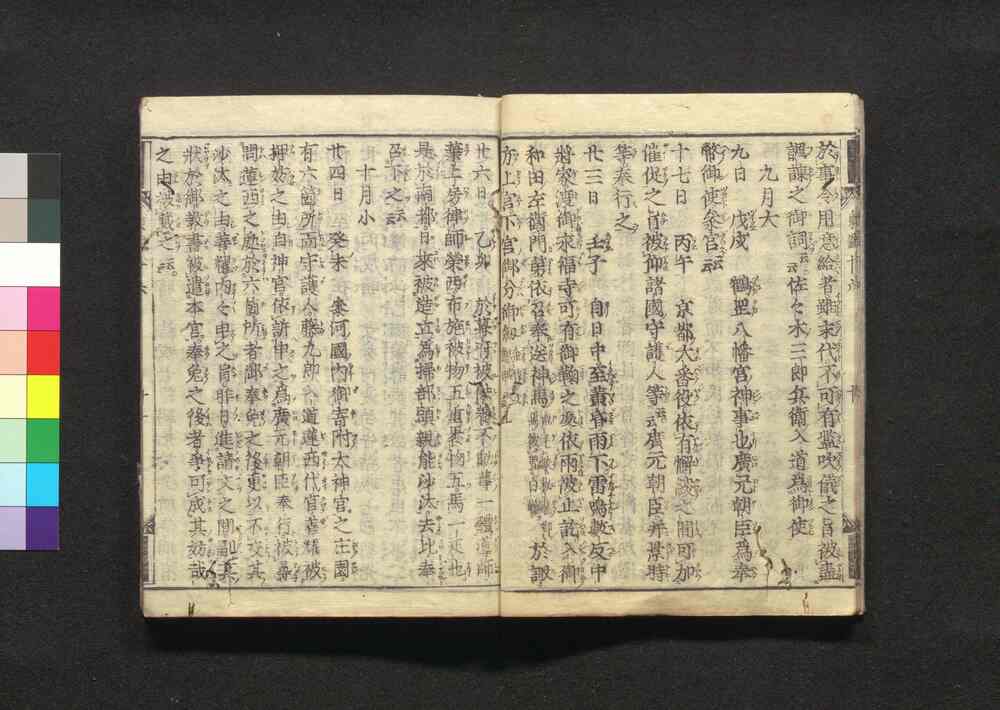 於事令用意給者雖末代不可有鑒吹儀之旨被盡
諷諫之御詞云云佐々木三郎兵衛入道為御使
九月大
九日 戊戌 鶴岳八幡宮神事也廣元朝臣為奉
幣御使參宮云云
十七日 丙午 京都大番役依有懈之間可加
催促之旨被仰諸國守護人等云云廣元朝臣并景時
等奉行之
廿三日 壬子 自日中至黄昏雨下雷鳴數反中
將家渡御永福寺可有御鞠之處依雨被止訖入御
和田左衛門第依召奉送神馬 於諏
方上宮下宮御分御劔
廿六日 乙卯 於幕府被供養不動尊一體導師
葉上房律師榮西布施被物五重裹物五馬一疋也
是於南都日來被造立為掃部頭親能沙汰去比奉
召下之云云
十月小
廿四日 癸未 參河國内御寄附太神宮之庄園
有六箇所而守護人藤九郎入道蓮西代官善耀被
押妨之由自神官依訴申之為廣元朝臣奉行被尋
問蓮西之處於六箇所者御奉免之後更以不交其
沙汰之由善耀内々申之旨昨日進請文之間副其
狀於御教書被遣本宮奉免之後者爭可成其妨哉
之由被載之云云